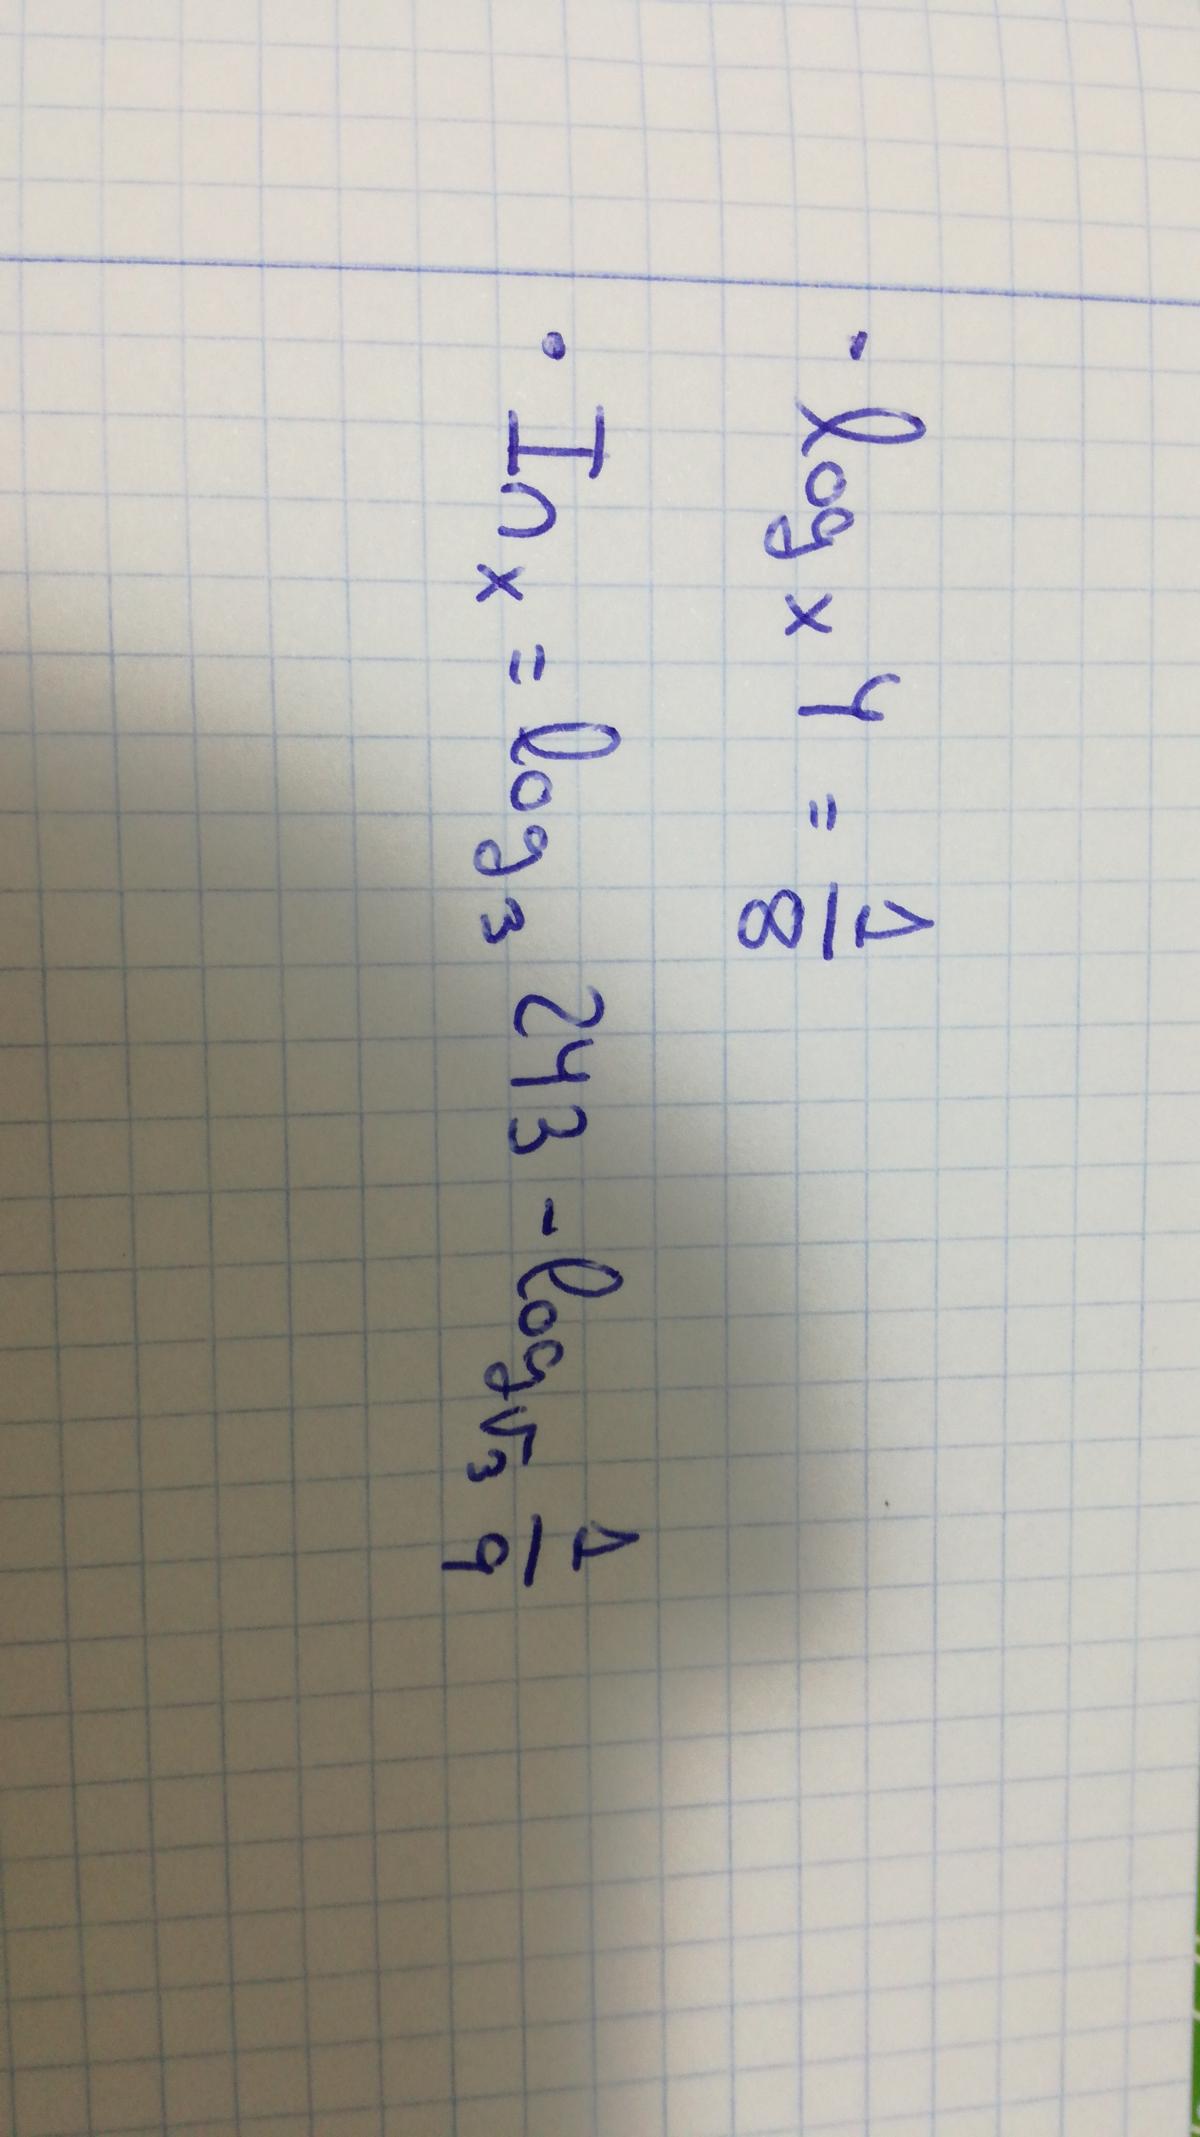 · log x 4 = 1/8
· In x = log₃ 243 - log√3 1/9